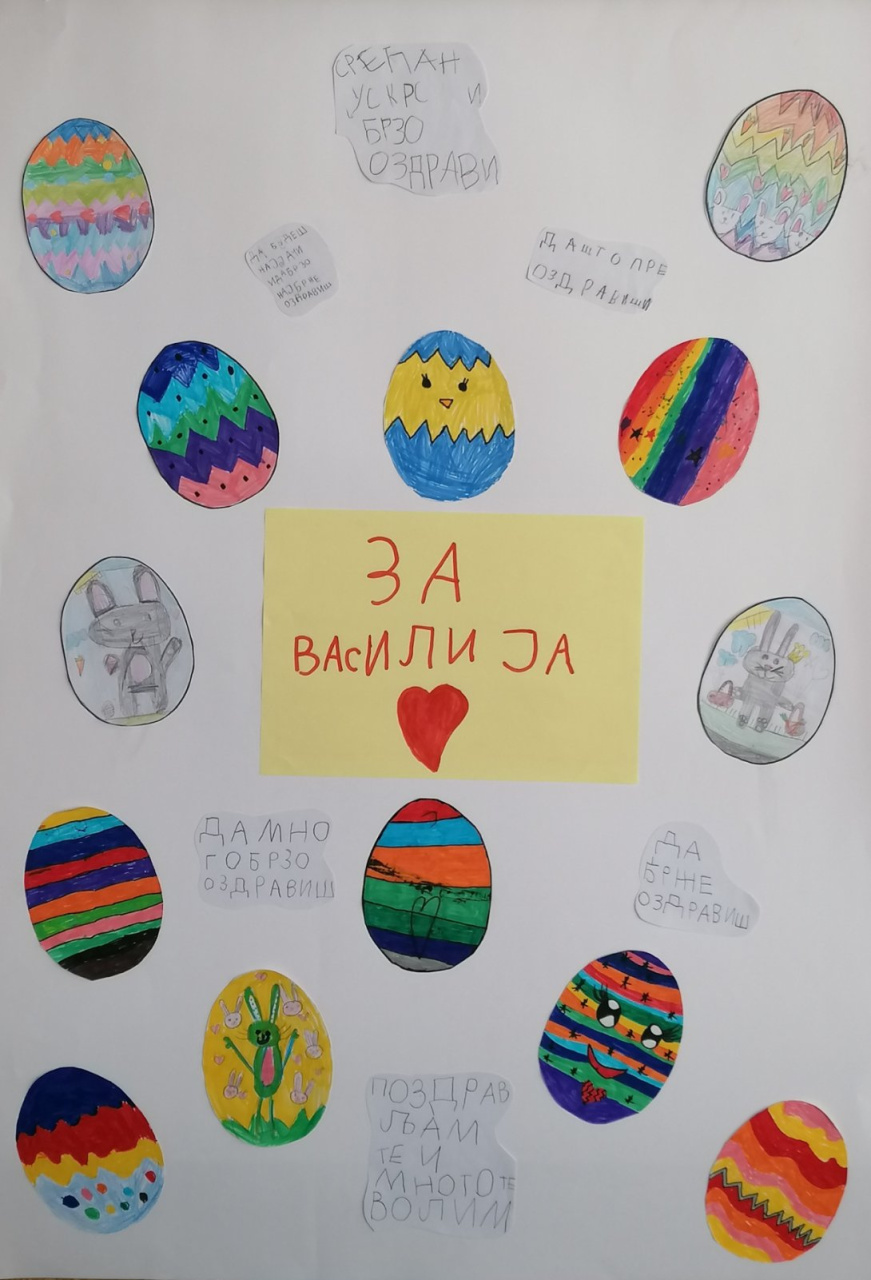 СРЕЋАН
УСКРС И
БРЗО
ОЗДРАВИ
ДА БУДЕШ
НАЈЈАЧИ
ИДАБРЗО
НАЈБРЖЕ
ОЗДРАВИШ
ДАШТОПРЕ
ОЗДРАВИШИ
ЗА
ВАСИЛИЈА
ДАМНО
ГОБРЗО
ОЗДРАВИШ
ДА
БРЖЕ
ОЗДРАВИШ
ПОЗДРАВ
ЉАМ
ТЕ И
МНОГО ТЕ
ВОЛИМ